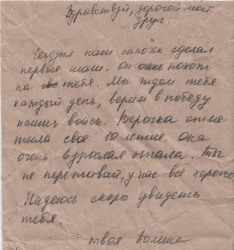 Здравствуй, дорогой мой
друг
Сегодня наш сынок сделал
первые шаги. Он очень похож
на тебя. Мы ждём тебя
каждый день, верим в победу
наших войск. Верочка отме-
тила своё 10-летие. Она
очень взрослая стала. Ты
не переживай, у нас всё хорошо
Надеюсь скоро увидеть
тебя.
твоя Полина